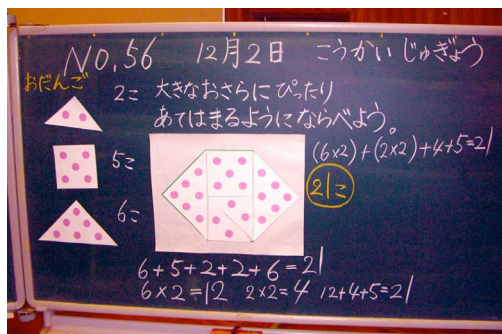 No.56 12月2日 こうかいじゅぎょう
おだんご
2こ 大きなおさらにぴったり
あてはまるようにならべよう。
5こ
6こ
(6×2)+(2×2)+4+5=21
21こ
6+5+2+2+6=21
6×2=12 2×2=4 12+4+5=21